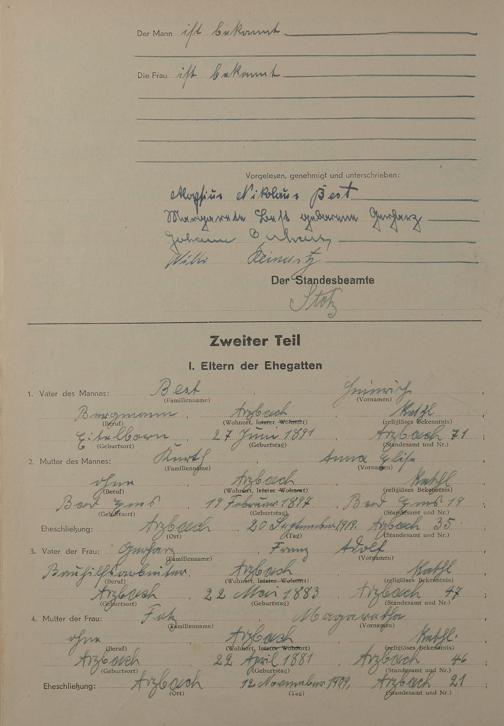 Der Mann ist bekannt
Die Frau ist bekannt
Vorgelesen, genehmigt und unterschrieben:
Aloysius Nikolaus Best
Margarete Best geborene Gerharz
Johann
Willi
Der Standesbeamte
Zweiter Teil
I. Eltern der Ehegatten
1. Vater des Mannes: Best Heinrich
(Familienname) (Vornamen)
Bergmann Arzbach Kathl
(Beruf) (Wohnort, letzter Wohnort) (religiöses Bekenntnis)
Eitelborn 27 Juni 1891 Arzbach 71
(Geburtsort) (Geburtstag) (Standesamt und Nr.)
2. Mutter des Mannes: Kurth Anna Elise
(Familienname) (Vornamen)
ohne Arzbach Kathl
(Beruf) (Wohnort, letzter Wohnort) (religiöses Bekenntnis)
Bad Ems 19 Februar 1897 Bad Ems 19
(Geburtsort) (Geburtstag) (Standesamt und Nr.)
Eheschließung: Arzbach 20 September 1919. Arzbach 35
(Ort) (Tag) (Standesamt und Nr.)
3. Vater der Frau: Gerharz Franz Adolf
(Familienname) (Vornamen)
Bauhilfsarbeiter Arzbach Kathl
(Beruf) (Wohnort, letzter Wohnort) (religiöses Bekenntnis)
Arzbach 22 Mai 1883 Arzbach 47
(Geburtsort) (Geburtstag) (Standesamt und Nr.)
4. Mutter der Frau: Magaretha
(Familienname) (Vornamen)
ohne Arzbach Kathl.
(Beruf) (Wohnort, letzter Wohnort) (religiöses Bekenntnis)
Arzbach 22 April 1881 Arzbach 46
(Geburtsort) (Geburtstag) (Standesamt und Nr.)
Eheschließung: Arzbach 12 November 1909. Arzbach 21
(Ort) (Tag) (Standesamt und Nr.)